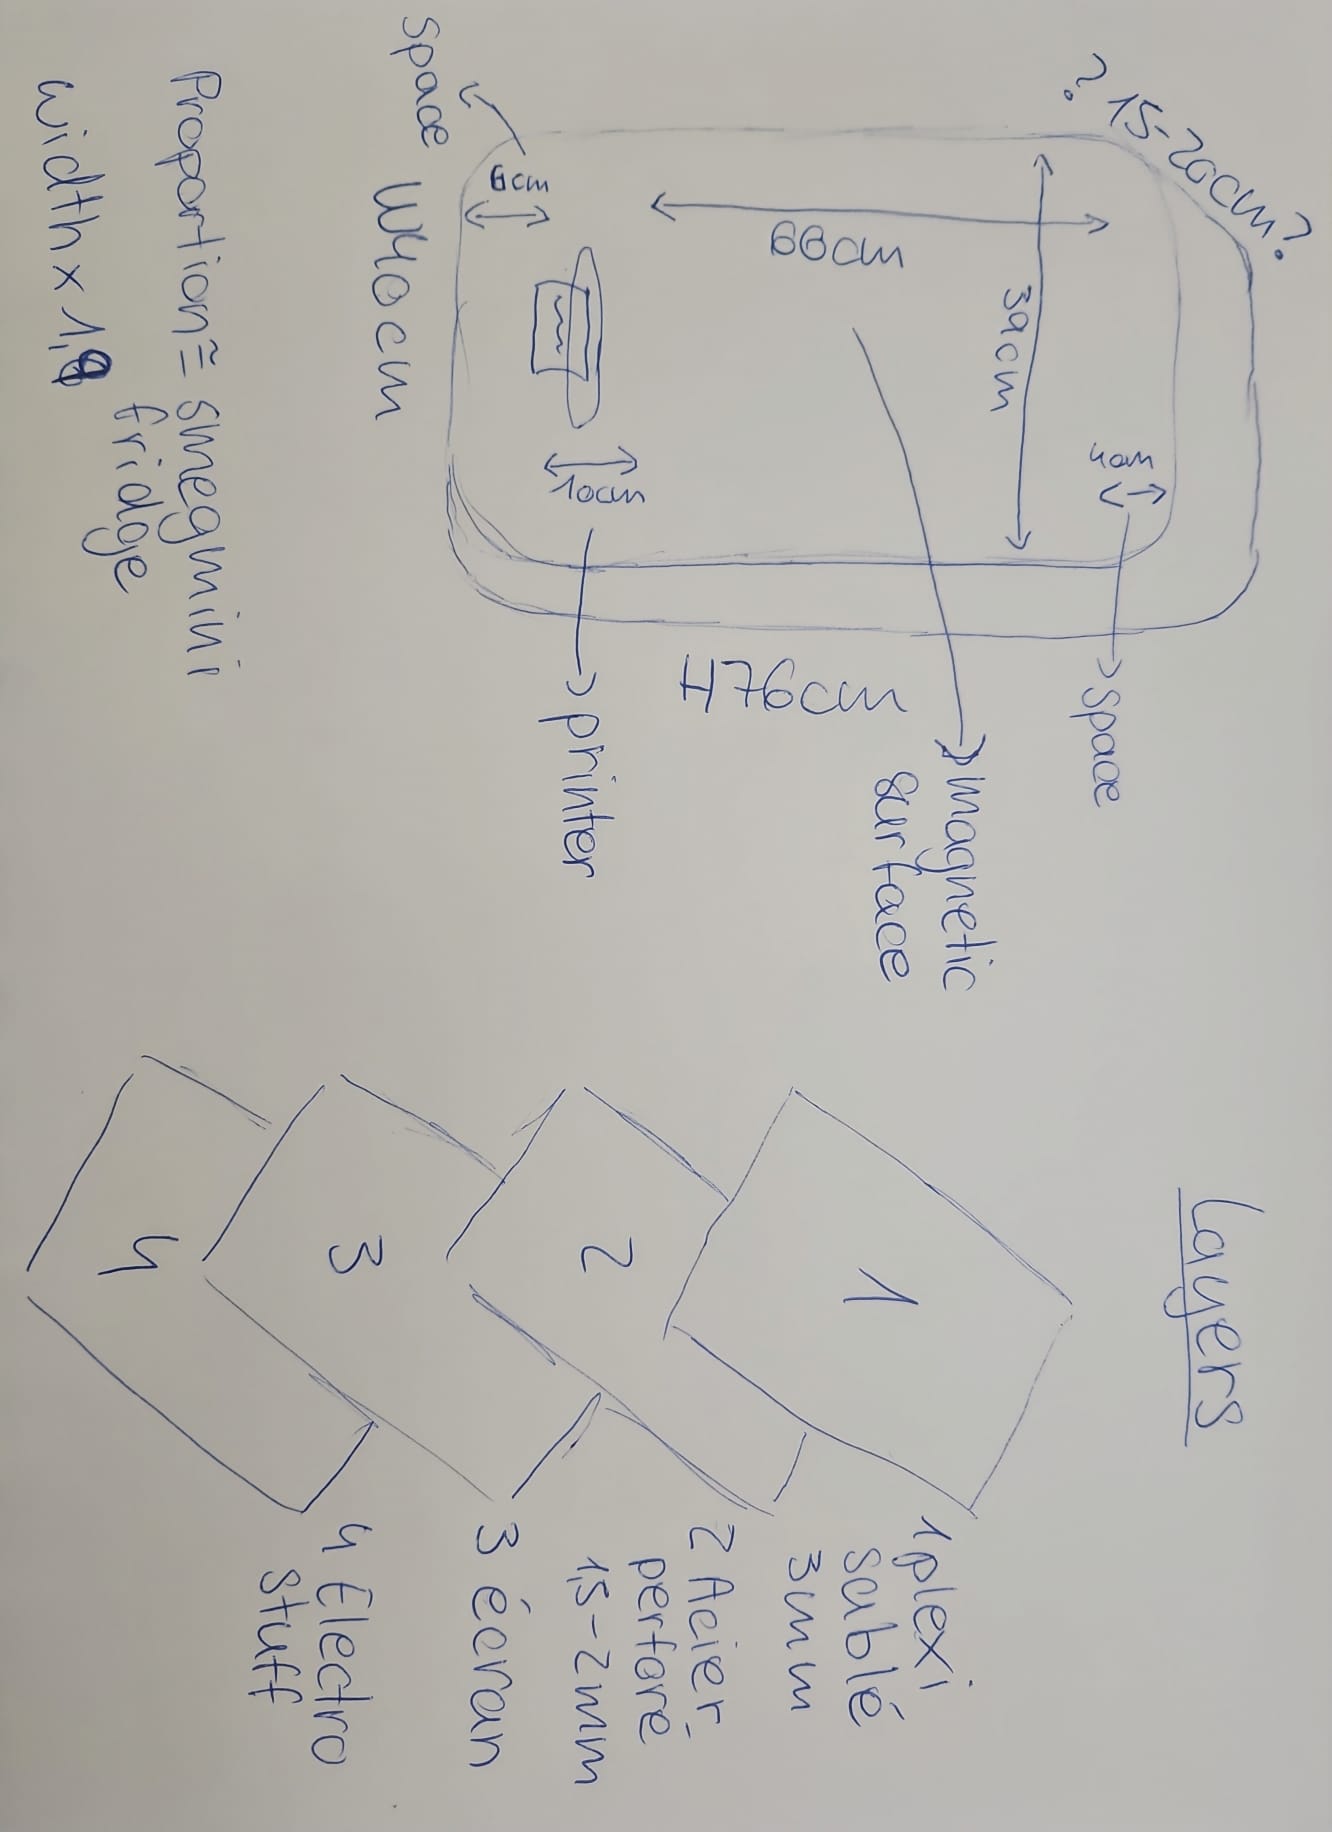 ? 15-20cm?
4cm
space
39cm
magnetic
surface
66cm
H76cm
10cm
printer
6cm
space
W40cm
Proportion ≅ smegmini
fridge
width x 1,9
Layers
1
1 plexi
sablé
3mm
2
2 Acier
perforé
1,5-2mm
3
3 écran
4
4 Electro
stuff